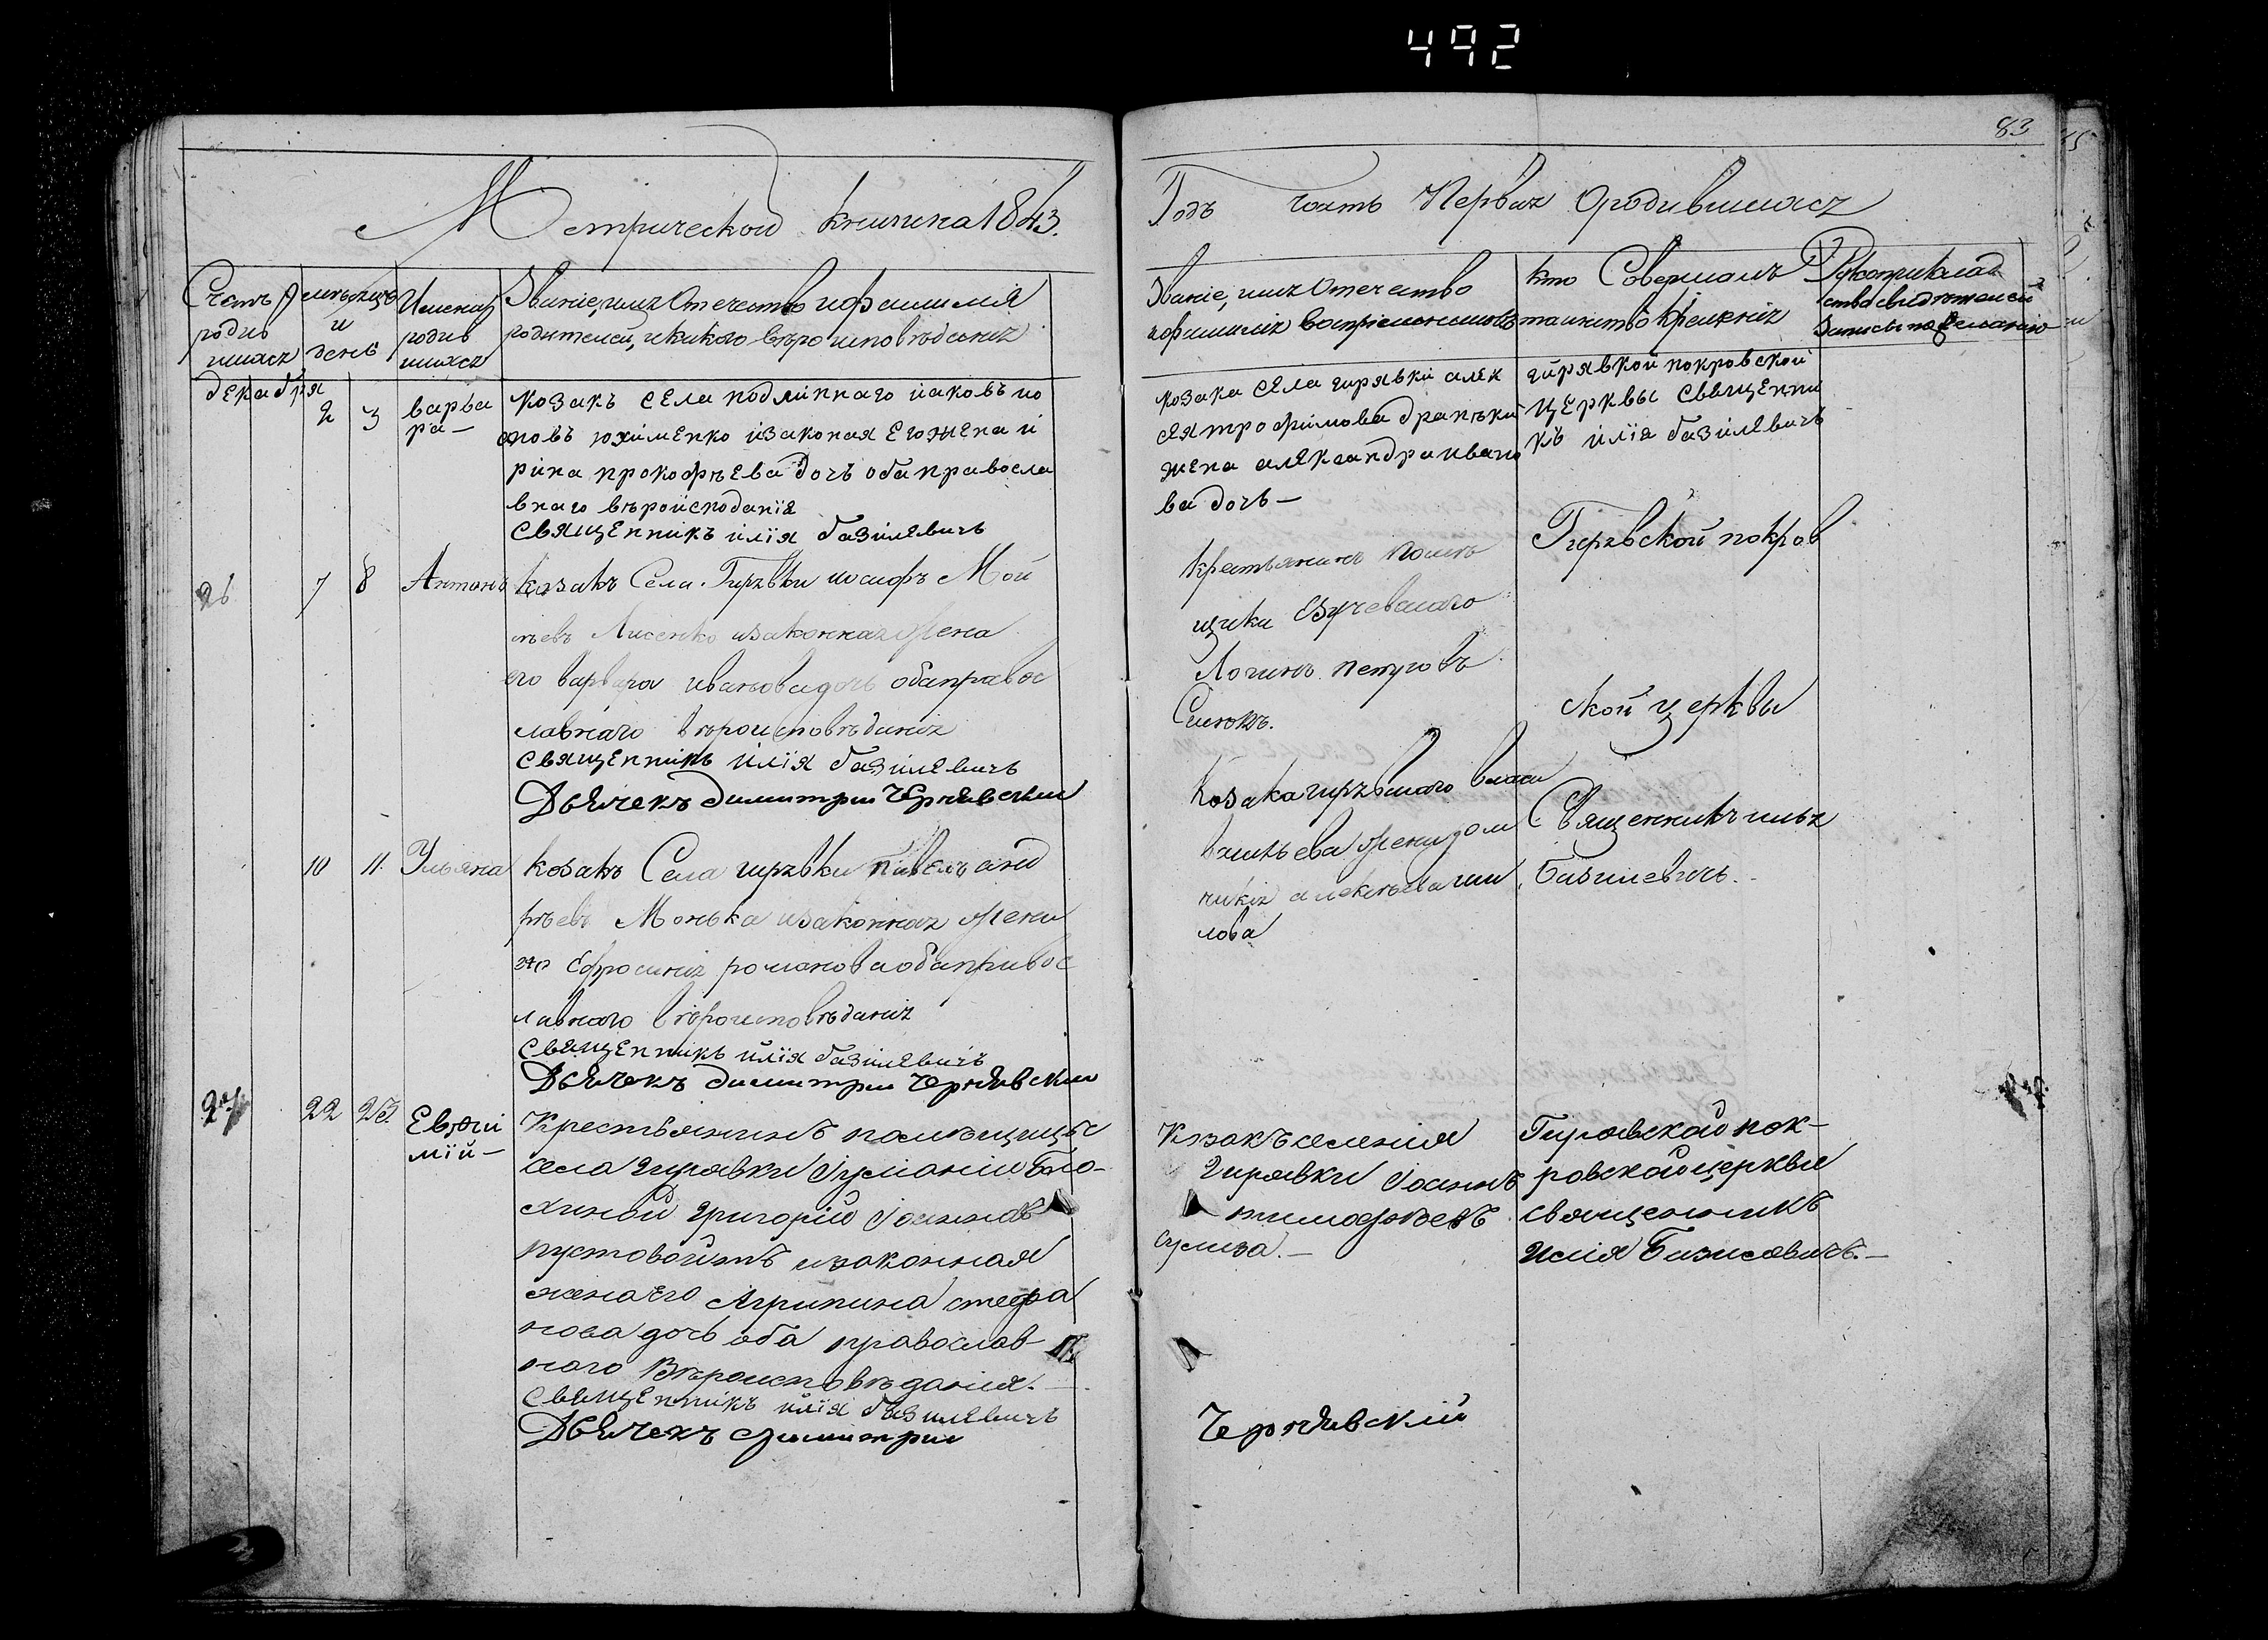 492
83
Метрической книги на 1843.
Годъ часть Первая о родившихся
Счетъ родив шихся
мѣсяцъ и день
Имена родив шихся
Званіе, имя Отечество и фамилія
родителей, и какого вѣроисповѣданія
Званіе, имя Отечество
и фамилія воспріемниковъ
кто Совершалъ
таинство Крещенія
Рукоприклад
ство свидѣтелей
записы по желанію
декабря
2 3 варва
ра—
козакъ сЕла подлипнаго иаковъ ио
сиовъ юхимЕнко изаконая Его жЕна и
рина прокофъЕва дочь оба правосла
внаго вѣроисподанїя
свящЕнникъ илїя базилЕвичъ
козака сЕла гирявки алЕк
сЕя трофимова драпѣки
жЕна алЕксандра ивано
ва дочь—
гирявкой покровской
цЕрквы свящЕнни
къ илїя базилЕвичъ
26 7 8 Антонъ
козакъ Села Гирявки иосифъ Мой
сѣевъ Лисенко изаконная Жена
его варвара иванова дочь оба правос
лавнаго вѣроисповѣданія
свящЕнникъ илїя базилЕвичъ
Дьячекъ Димитрии Чернявскии
Крестьянинъ помѣ
щика
Логинъ петровъ
Гирявской покров
ской церквы
10 11. Ульяна
козакъ Села гирявки павелъ анд
рѣевъ Монька изаконная Жена
его Ефросинія романова оба правос
лавнаго вѣроисповѣданія
свящЕнникъ илїя базилЕвичъ
Дьячекъ Димитрии Чернявскии
Козака гирявскаго
жена дом
никія
Священникъ илья
Базилевичъ.
27 22 23. Евфи
мїй—
Крестьянинъ помѣщицы
села Гирявки Іулианіи Бло-
хиной Григорій Іоанновъ
пустовойтъ изаконная
жена его Агрипина стефа
нова дочь оба православ-
наго Вѣроисповѣданія.—
свящЕнникъ илїя базилЕвичъ
Дьячекъ Димитрии
Чернявскій
Козакъ селенія
Гирявки Іоаннъ
тимофѣевъ
сулима.—
Гирявской пок-
ровской церквы
священникъ
Илія Базилевичъ.—